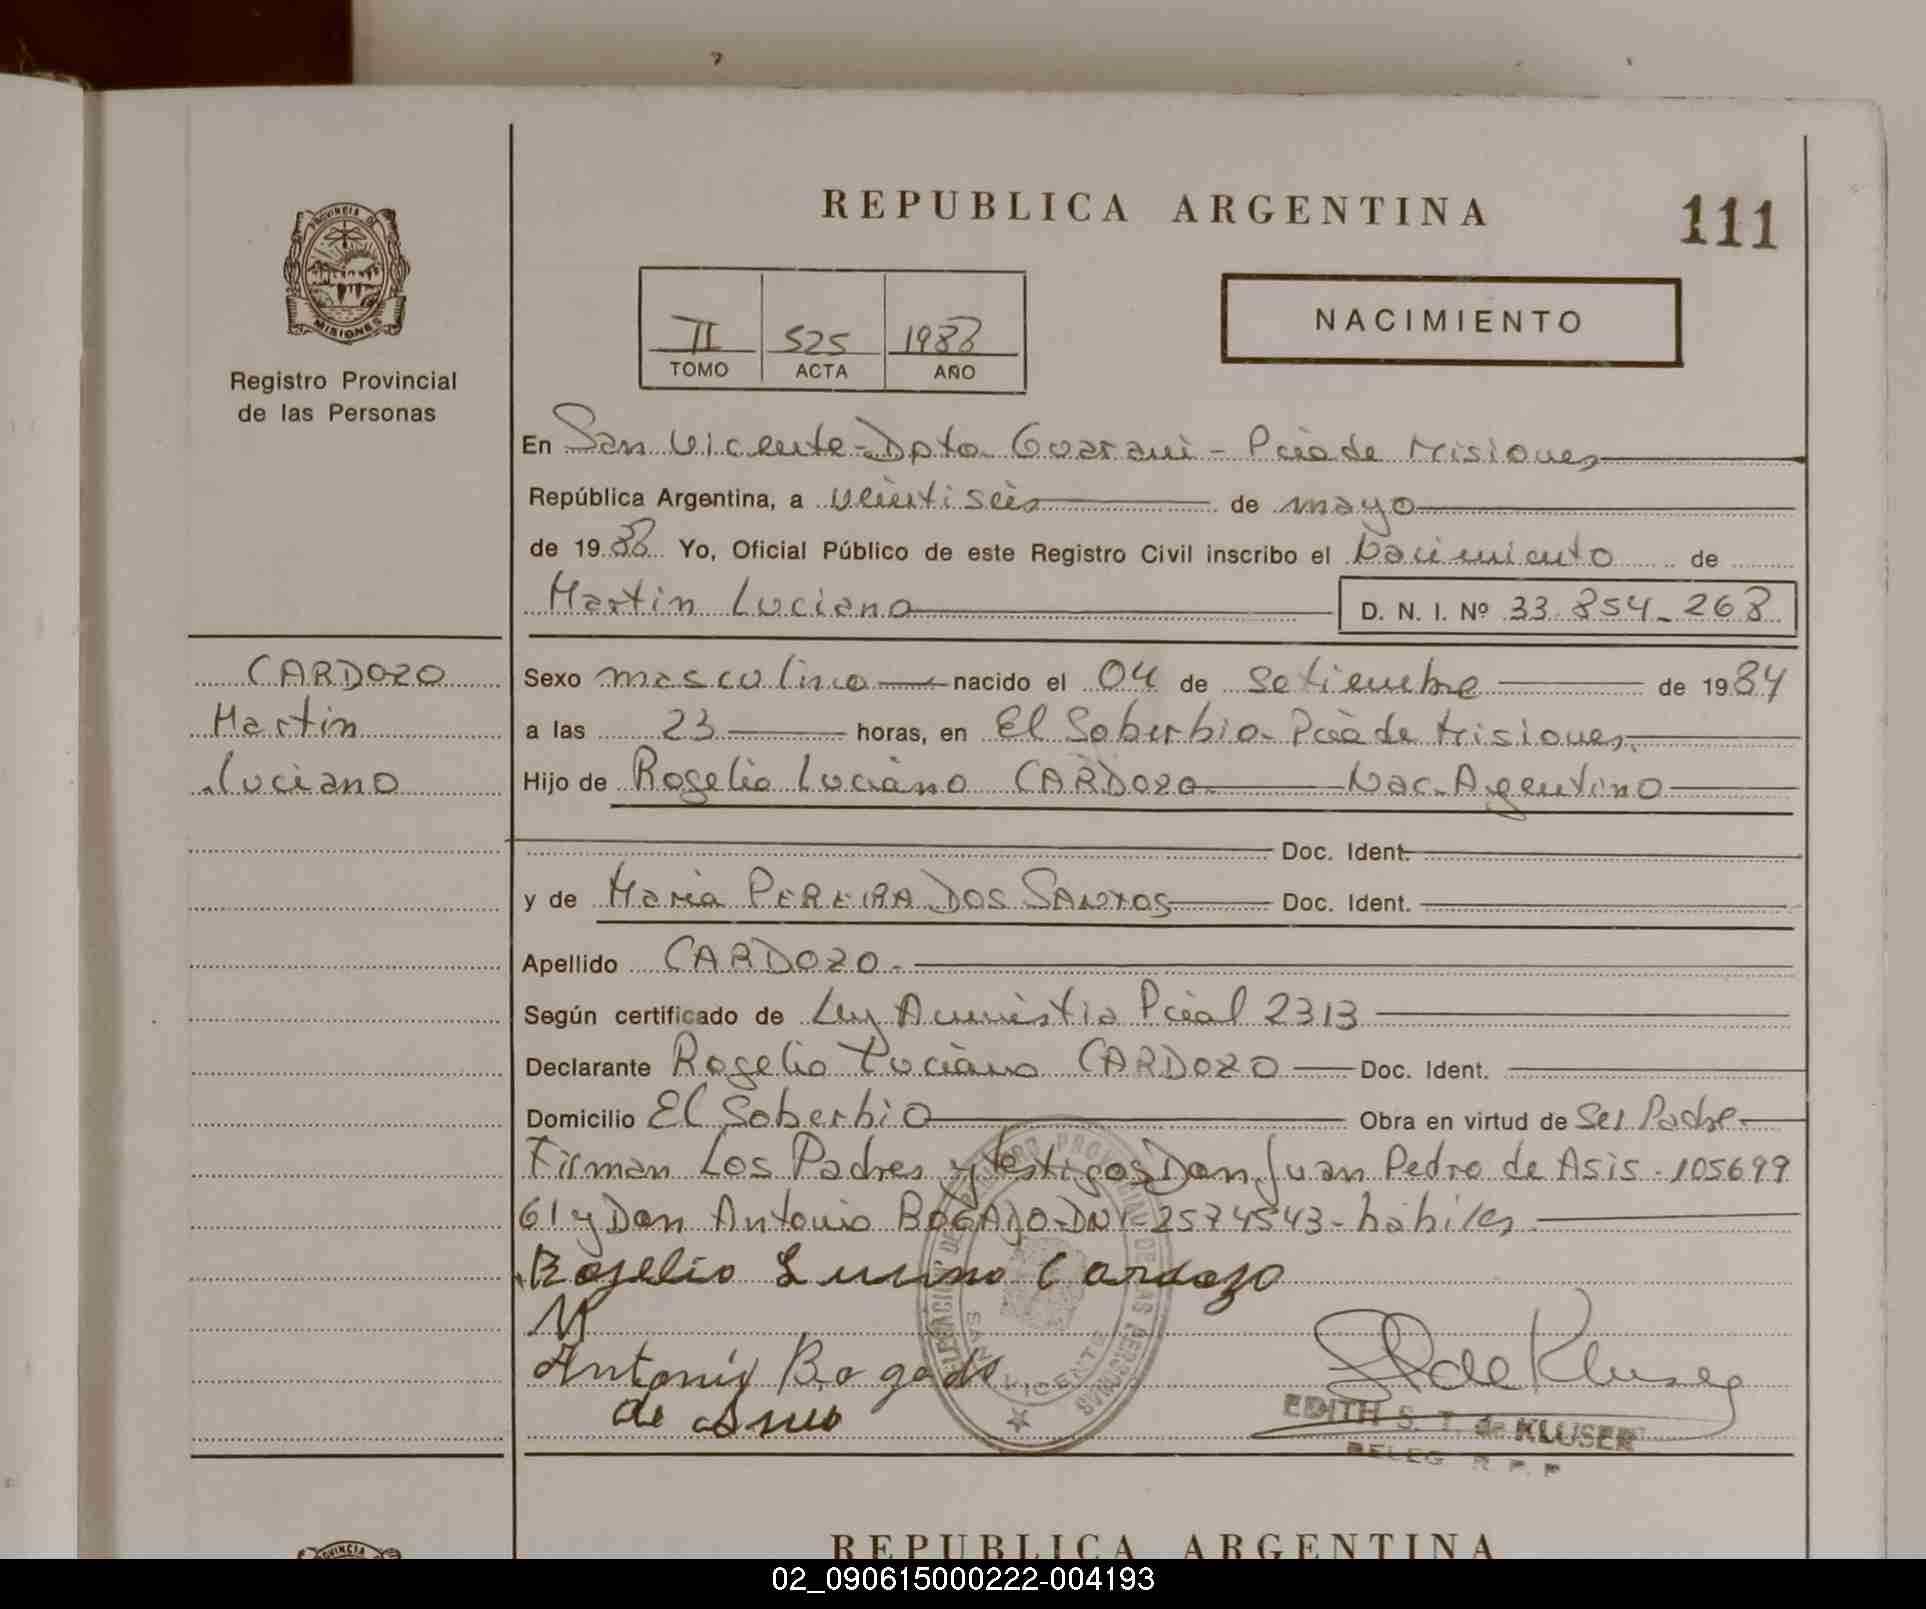 REPUBLICA ARGENTINA
111
PROVINCIA DE
MISIONES
Registro Provincial
de las Personas
II 525 1988
TOMO ACTA AÑO
NACIMIENTO
En San Vicente - Dpto. Guarani - Pcia de Misiones
República Argentina, a veintiseis de mayo
de 1988 Yo, Oficial Público de este Registro Civil inscribo el Nacimiento de
Martin Luciano D. N. I. Nº 33.854.268
CARDOZO
Martin
Luciano
Sexo masculino nacido el 04 de setiembre de 1984
a las 23 horas, en El Soberbio - Pcia de Misiones
Hijo de Rogelio Luciano CARDOZO Nac. Argentino
Doc. Ident.
y de Maria PEREIRA DOS SANTOS Doc. Ident.
Apellido CARDOZO.
Según certificado de Ley Amnistia Pcial 2313
Declarante Rogelio Luciano CARDOZO Doc. Ident.
Domicilio El Soberbio Obra en virtud de Ser Padre
Firman Los Padres y testigos Don Juan Pedro de Asis - 105699
61 y Don Antonio BOGADO - DNI - 2574543 - habiles
Rogelio Luciano Cardozo
M
Antonio Bogado
de
DELEGACION DEL REGISTRO PROVINCIAL DE LAS PERSONAS
SAN VICENTE
de Kluser
EDITH S. T. de KLUSER
DELEG. R. P. P.
PROVINCIA
REPUBLICA ARGENTINA
02_090615000222-004193